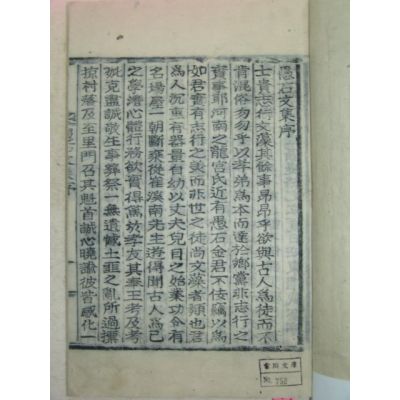 愚石文集序
士貴志行文藻其餘事昂昂乎欲與古人爲徒而不
肯混俗匆匆乎以孝弟爲本而達於鄉黨非志行之
實事耶河南之龍宮氏近有愚石金君不佞竊以爲
如君實有志行之美而非世之徒尚文藻者類也君
爲人沉重有器量自幼以丈夫兒目之始業功令有
名場屋一朝斷棄從崔溪南先生遊得聞古人爲己
之學潛心體行務欲實得篤於孝友其奉王考及考
妣克盡誠敬生事葬祭一無遺憾土匪之亂所過
掠村落及至里門召其魁首誠心曉諭彼皆感化一
文庫
No. 752